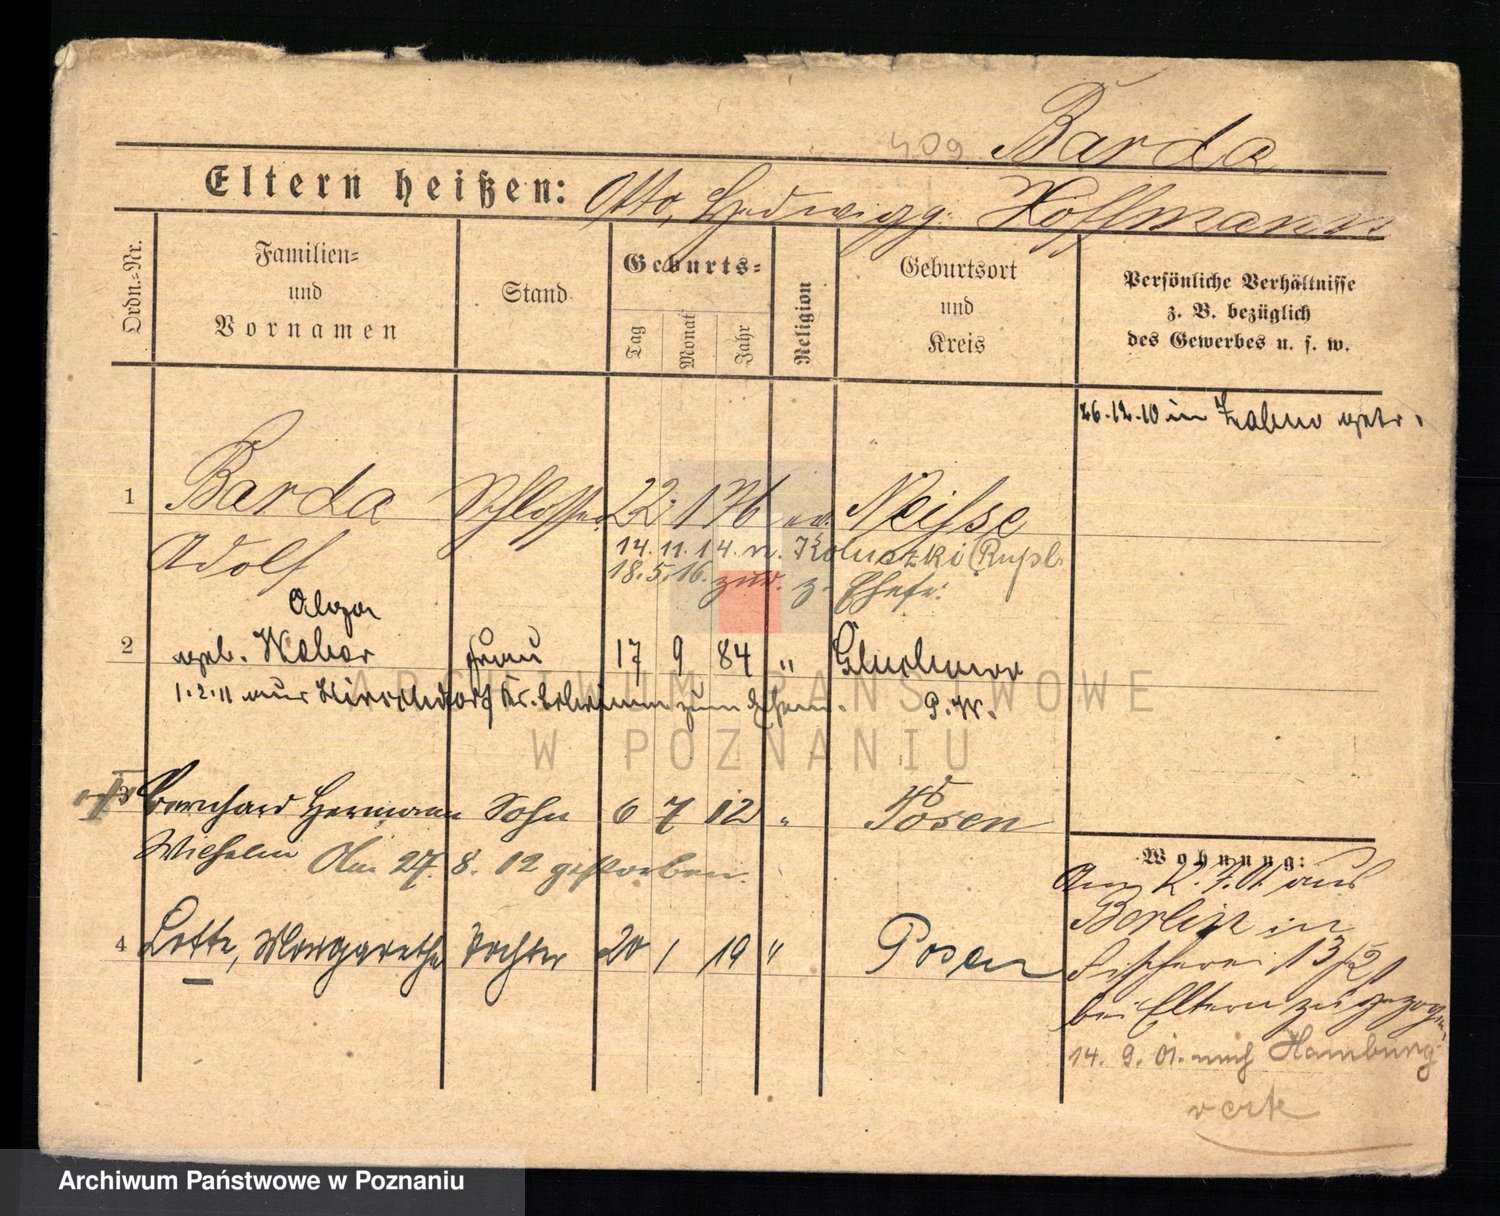 409 Barda
Eltern heißen: Otto, Hedwig g. Hoffmann
Ordn.-Nr.
Familien-
und
Vornamen
Stand
Geburts-
Tag
Monat
Jahr
Religion
Geburtsort
und
Kreis
Persönliche Verhältnisse
z. B. bezüglich
des Gewerbes u. s. w.
26.12.10 in getr.
1 Barda Schlosser 22 1 76 ev. Neisse
Adolf
14.11.14. n. (Rußl.
18.5.16. zur. z. Ehefr.
2 geb. Frau 17 9 84 "
1.2.11 aus Kr. zum Ehem. P. W.
3 Bernhard Hermann Sohn 6 7 12 " Posen
Wilhelm Am 27. 8. 12 gestorben.
4 Lotte, Margarethe Tochter 20 1 19 " Posen
Wohnung:
Am 2. 7. 01 aus
Berlin in
Fischerei 13/21
bei Eltern zugezogen,
14. 9. 01. nach Hamburg
verte
ARCHIWUM PAŃSTWOWE
W POZNANIU
Archiwum Państwowe w Poznaniu